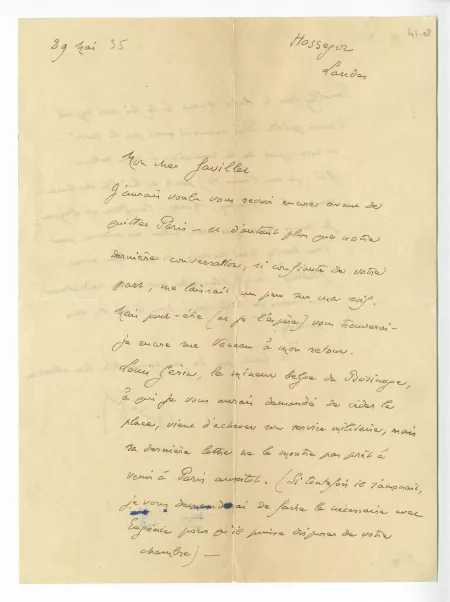 41-08
29 Mai 35
Hossegor
Landes
Mon cher
J'aurais voulu vous revoir encore avant de
quitter Paris — et d'autant plus que notre
dernière conversation, si confiante de votre
part, me laissait un peu sur ma soif.
Mais peut-être (et je l'espère) vous trouverai-
je encore rue Vaneau à mon retour.
Louis Gérin, le mineur belge du Borinage,
à qui je vous aurais demandé de céder la
place, vient d'achever son service militaire, mais
sa dernière lettre ne le montre pas prêt à
venir à Paris aussitôt. (Si toutefois il
je vous demanderai de faire le nécessaire avec
Eugénie pour qu'il puisse disposer de votre
chambre) —